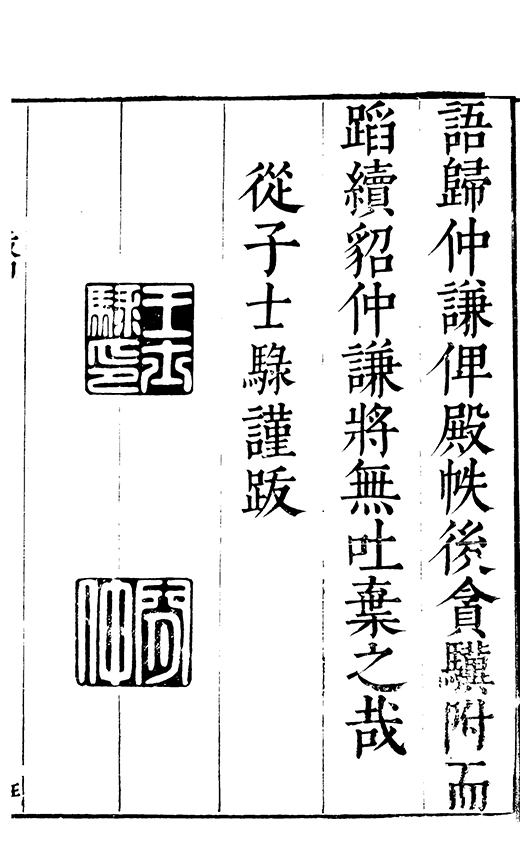 語歸仲謙俾殿帙後貪驥附而
蹈續貂仲謙將無吐棄之哉
從子士騄謹跋
王士騄印